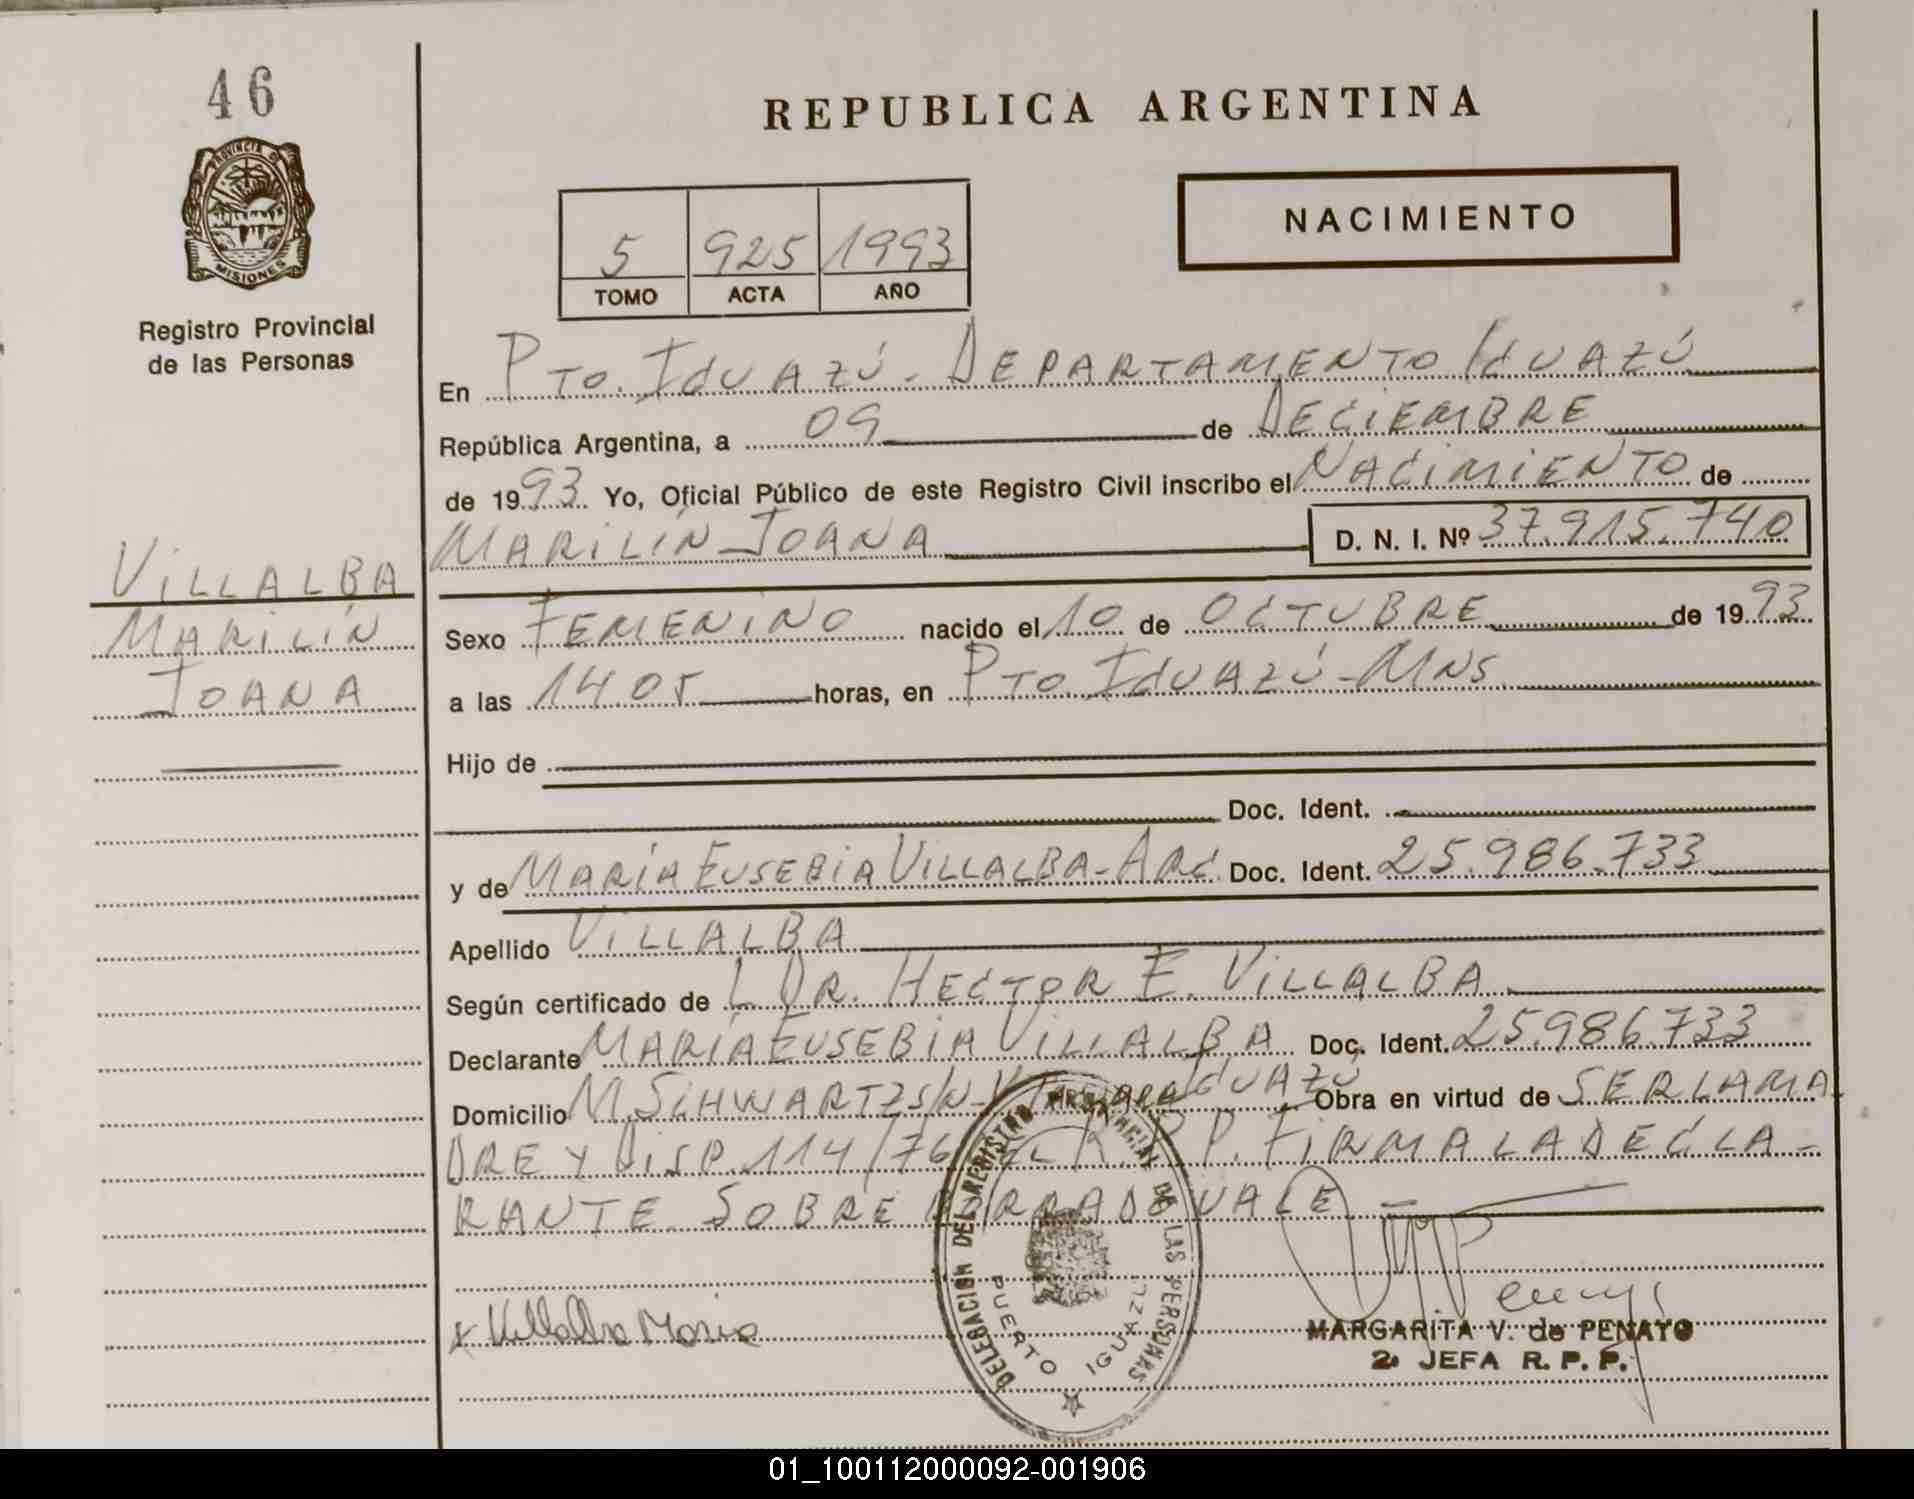 46
PROVINCIA DE
MISIONES
Registro Provincial
de las Personas
VILLALBA
MARILIN
JOANA
REPUBLICA ARGENTINA
NACIMIENTO
5 925 1993
TOMO ACTA AÑO
En PTO. IGUAZÚ - DEPARTAMENTO IGUAZÚ
República Argentina, a 09 de DECIEMBRE
de 1993 Yo, Oficial Público de este Registro Civil inscribo el NACIMIENTO de
MARILÍN JOANA D. N. I. Nº 37.915.740
Sexo FEMENINO nacido el 10 de OCTUBRE de 1993
a las 14.05 horas, en PTO. IGUAZÚ - MNS.
Hijo de
Doc. Ident.
y de MARÍA EUSEBIA VILLALBA - ARG. Doc. Ident. 25.986.733
Apellido VILLALBA
Según certificado de DR. HECTOR E. VILLALBA
Declarante MARÍA EUSEBIA VILLALBA Doc. Ident. 25.986.733
Domicilio M. SCHWARTZ S/N - IGUAZÚ Obra en virtud de SER LA MA
DRE Y DISP. 114/76 R. P. P. FIRMA LA DECLA-
RANTE. SOBRE BORRADO VALE
DELEGACION DEL REGISTRO PROVINCIAL DE LAS PERSONAS
PUERTO IGUAZU
x Villalba Maria
MARGARITA V. de PENAYO
2ª JEFA R. P. P.
01_100112000092-001906